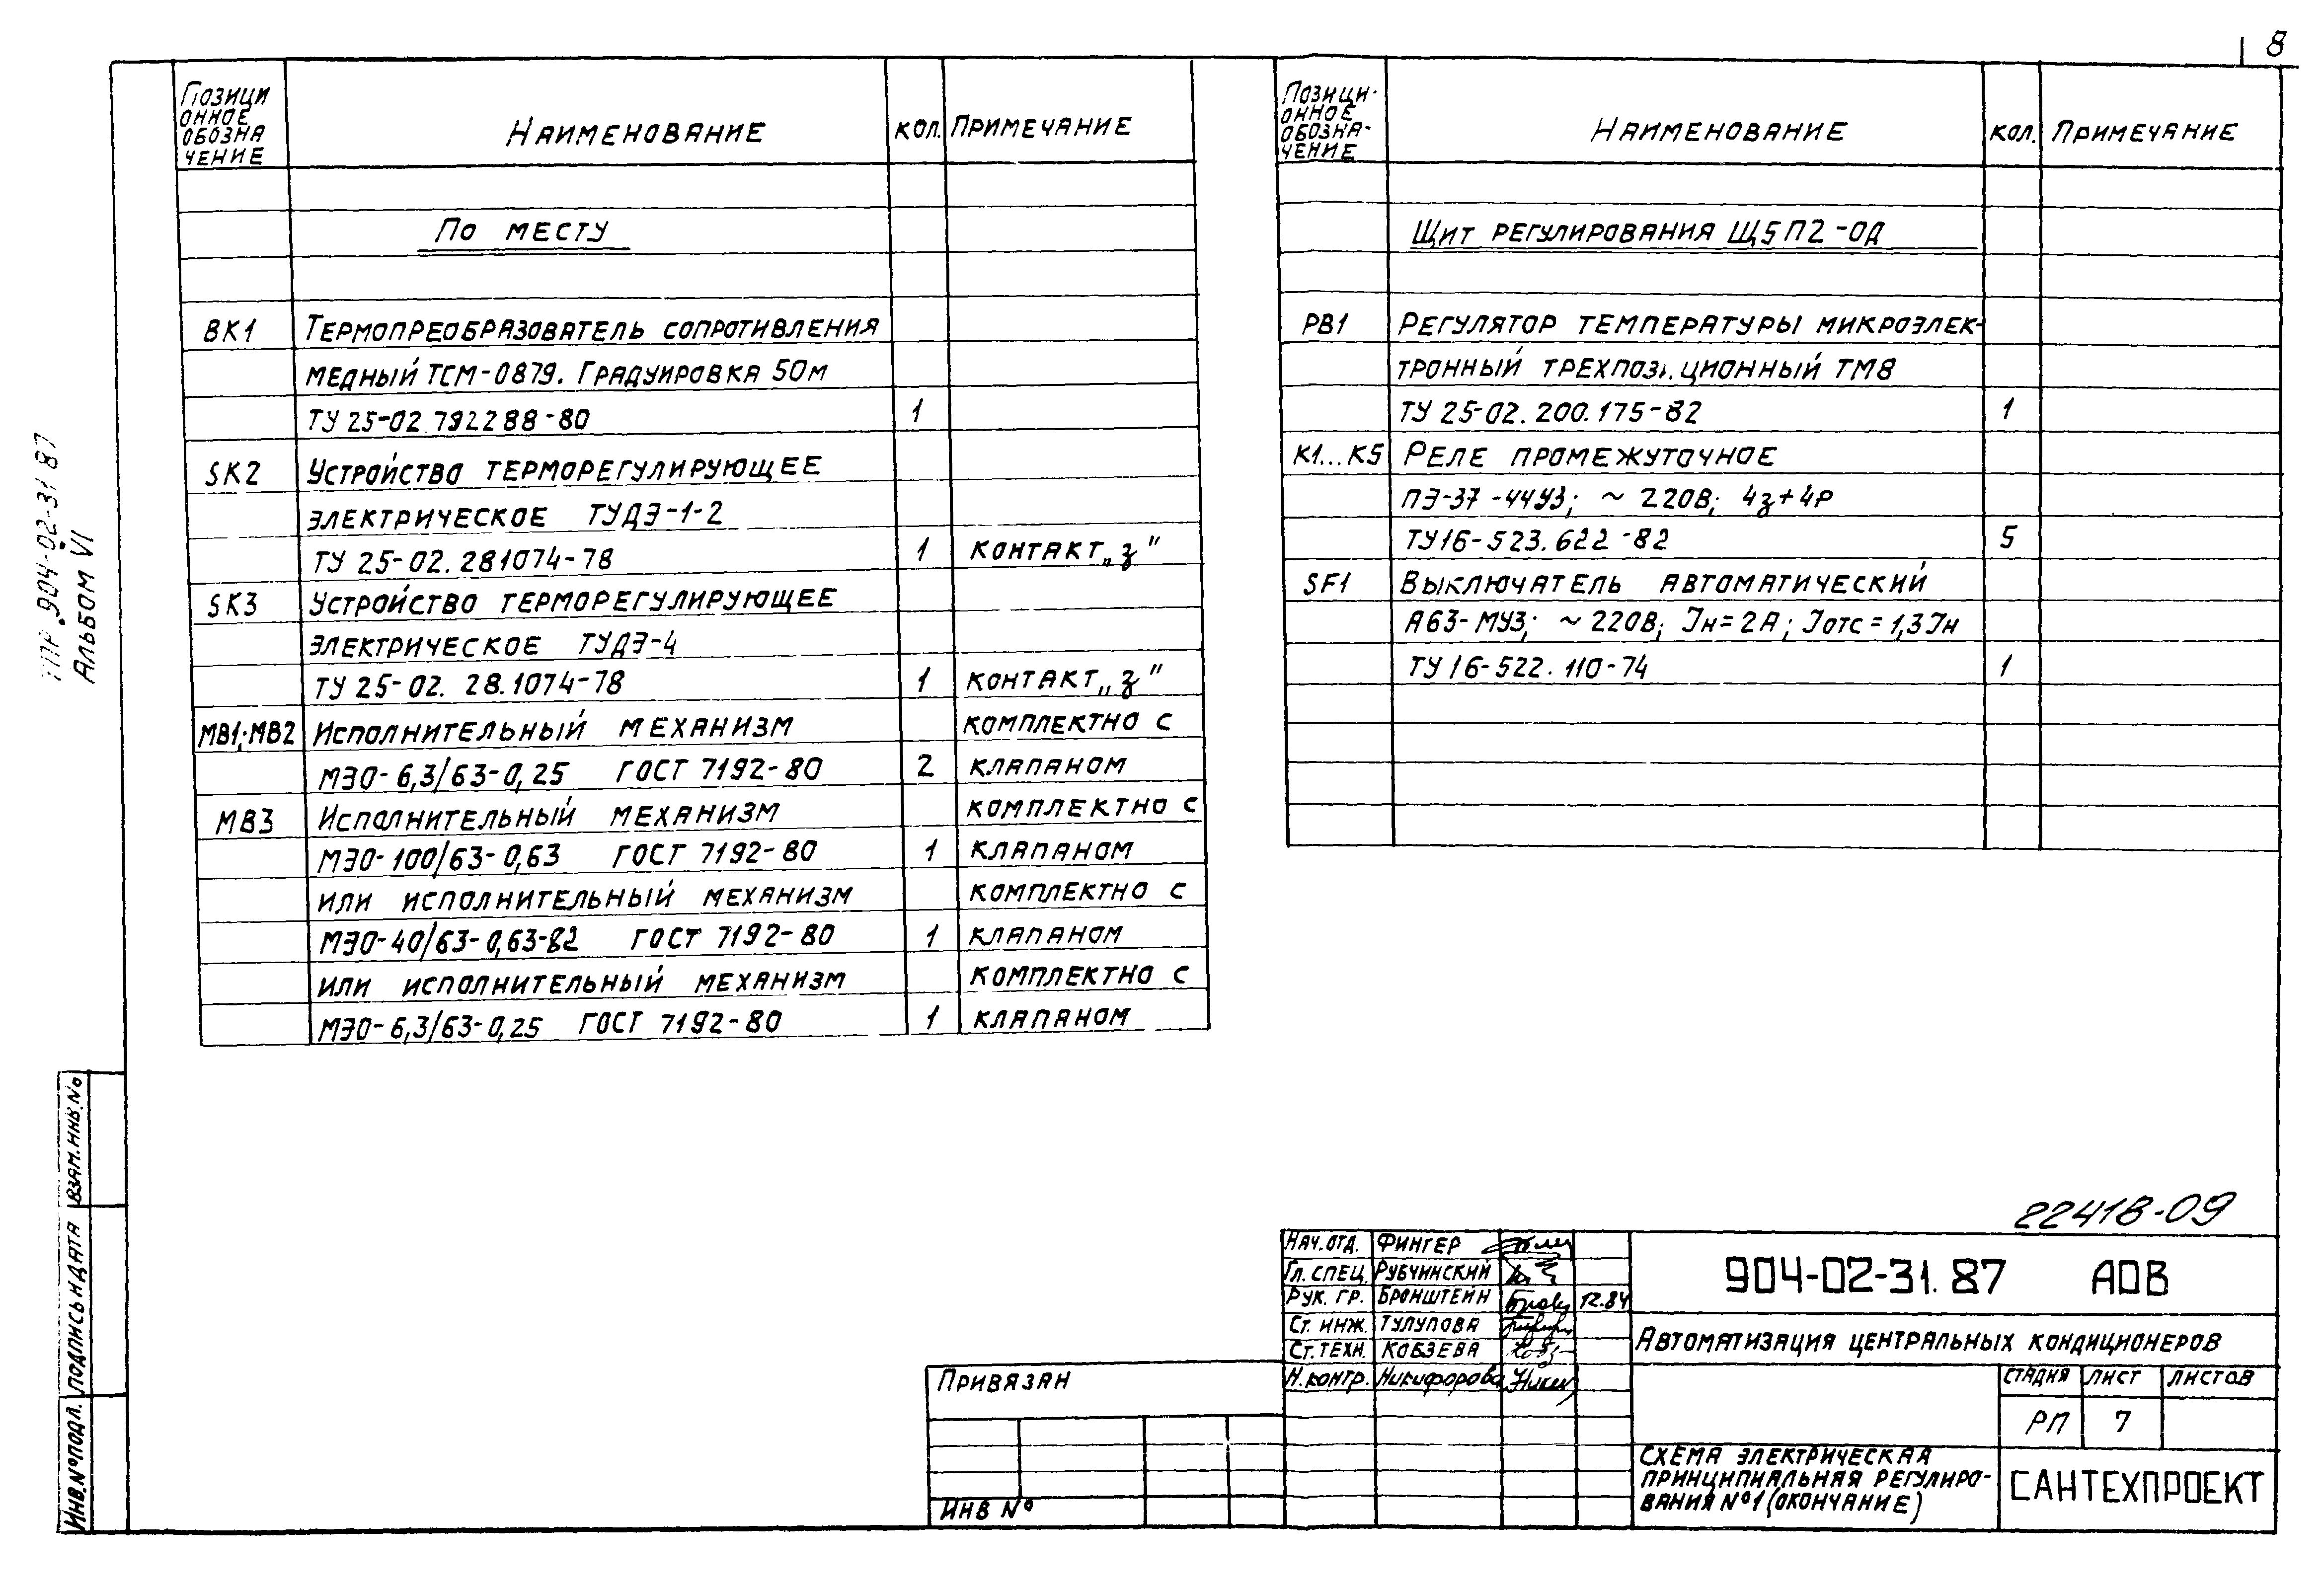 8
Позици
онное
обозна
чение
Наименование
кол.
Примечание
По месту
ВК1
Термопреобразователь сопротивления
медный ТСМ-0879. Градуировка 50м
ТУ 25-02.792288-80
1
SK2
Устройство терморегулирующее
электрическое ТУДЭ-1-2
ТУ 25-02.281074-78
1
контакт „з"
SK3
Устройство терморегулирующее
электрическое ТУДЭ-4
ТУ 25-02. 28.1074-78
1
контакт „з"
МВ1; МВ2
Исполнительный механизм
комплектно с
МЭО-6,3/63-0,25 ГОСТ 7192-80
2
клапаном
МВ3
Исполнительный механизм
комплектно с
МЭО-100/63-0,63 ГОСТ 7192-80
1
клапаном
или исполнительный механизм
комплектно с
МЭО-40/63-0,63-82 ГОСТ 7192-80
1
клапаном
или исполнительный механизм
комплектно с
МЭО-6,3/63-0,25 ГОСТ 7192-80
1
клапаном
Позици-
онное
обозна-
чение
Наименование
кол.
Примечание
Щит регулирования Щ5П2-ОД
РВ1
Регулятор температуры микроэлек-
тронный трехпозиционный ТМ8
ТУ 25-02.200.175-82
1
К1...К5
Реле промежуточное
ПЭ-37-44У3; ~ 220В; 4з+4р
ТУ16-523.622-82
5
SF1
Выключатель автоматический
А63-МУ3; ~ 220В; Iн=2А; Iотс=1,3Iн
ТУ 16-522.110-74
1
ТПР 904-02-31.87
Альбом VI
Взам.инв.№
Подпись и дата
Инв.№ подл.
22418-09
Нач.отд. Фингер
Гл. спец. Рубчинский
Рук. гр. Бронштейн 12.84
Ст. инж. Тулупова
Ст. техн. Кобзева
Н.контр. Никифорова
904-02-31.87 АОВ
Автоматизация центральных кондиционеров
стадия лист листов
РП 7
Схема электрическая
принципиальная регулиро-
вания №1 (окончание)
САНТЕХПРОЕКТ
Привязан
Инв №